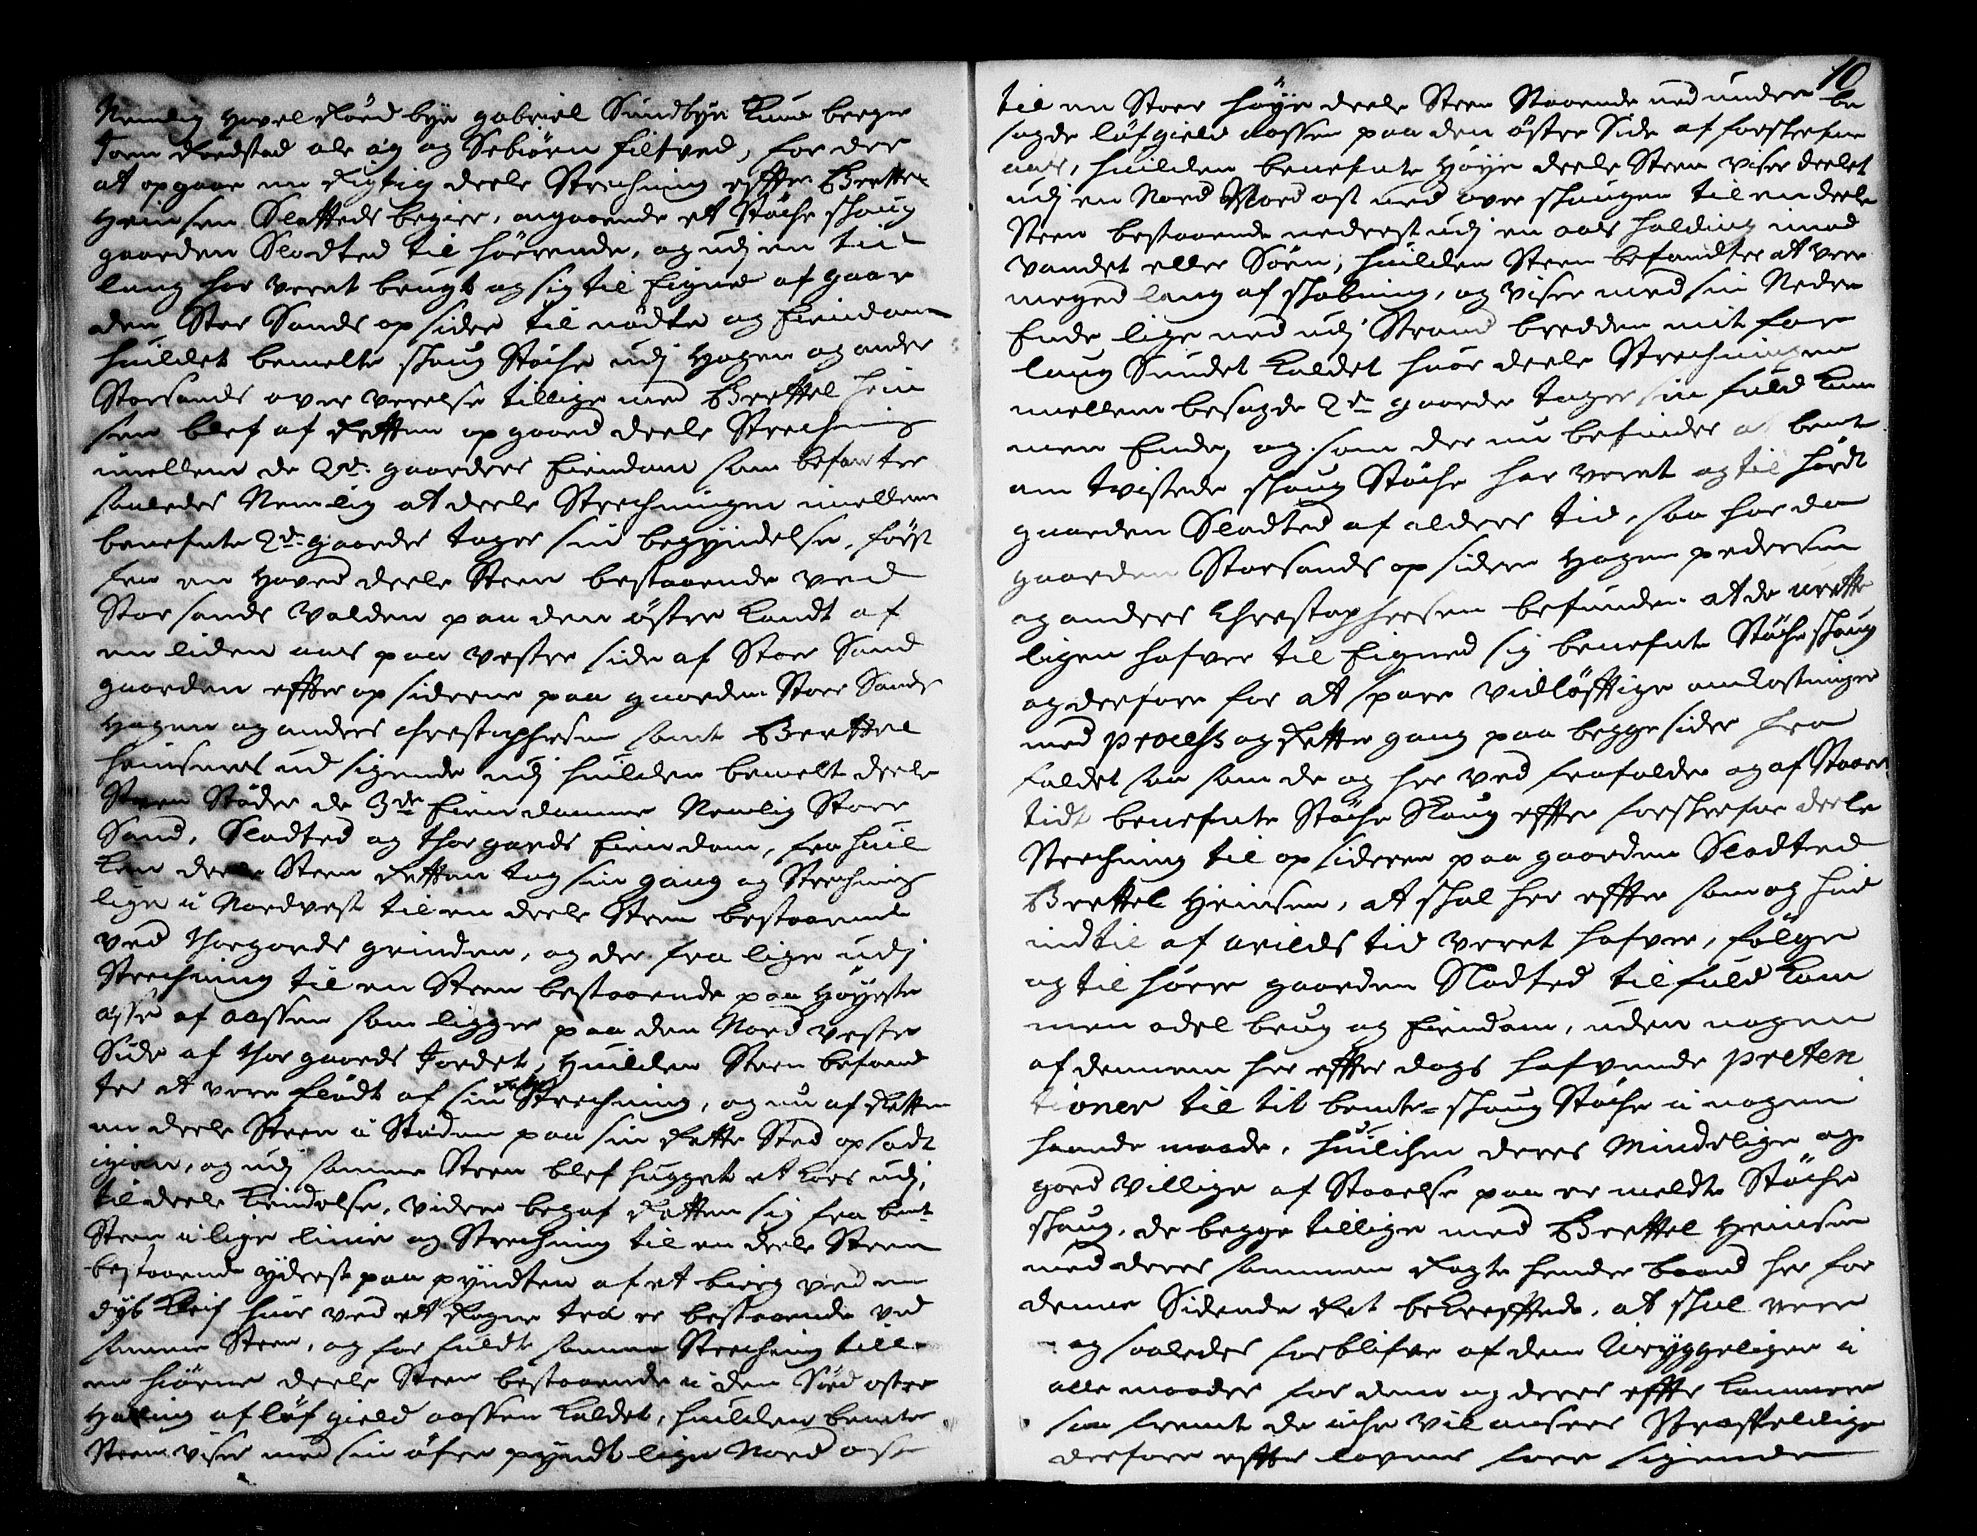 Nemlig Hovel Røed bye gabriel Sundbye Lime berger
Joen Rødstad ole og og Sebiørn Hiltved, for der
at opgaae en Rigtig deele Strechning effter Brettel
Heinsen Slotteds begier, angaaende et Støche schoug
gaarden Slodted til hørende, og udj en tid
lang har veret brugt og sig til Eignet af gaar
den Stor Sands opsider til nødte og Eiendom
huilcket bemelte schoug Støche udj Hagen og anders
Storsands over verelse tillige med Brettel Hein
sen blef af Retten op gaaed deele Strechning
imellem de 2de gaarders Eiendom som befantes
saaledes Nemlig at deele Strechningen imellem
benefnte 2de gaarder tager sin begyndelse, først
fra en Hoved deele Steen bestaaende ved
Storsands Valden paa den østre Kandt af
en liden aas paa vester side af Stoer Sand
gaarden effter opsiderne paa gaarden Stoer Sands
Hagen og anders Chrestophersen samt Brettel
Heinsens ud sigende udj huilcken bemelt deele
Steen Støder de 3de Eiendomme Nemlig Stoer
Sand, Slodted og Thorgaards Eiendom, fra huil
ken deele Steen Retten tog sin gang og Strechning
lige i Nordvest til en deele Steen bestaaende
ved Thorgaards grinden, og der fra lige udj
Strechning til en Steen bestaaende paa Høyeste
aasse af aassen som ligger paa den Nord vestre
Side af Thorgaards Jordet, Huilcken Steen befand
tes at vere flødt af sin rette Strechning, og nu af Retten
en deele Steen i Steden paa sin Rette Sted opsadt
igien, og udj samme Steen blef hugget et Kors udj,
til deele Kiendelse, videre begaf Retten sig fra bemt
Steen i lige linie og Strechning til en deele Steen
bestaaende yderst paa pyndten af et bierg ved en
dyb Kleif huor ved et Rogne træ er bestaaende ved
samme Steen, og for fuldt samme Strechning till
en hiørne deele Steen bestaaende i den Sød ostre
Halling af løfgield aassen Kaldet, huilcken bemte
Steen viser med sin øfre pyndt lige Nord ost
10
til en Stoer høye deele Steen Staaende ned under be
sagde løfgield aassen paa den østre Side af forschrefne
aas, huilcken benefnte Høye deele Steen viser deelet
udj en Nord Nord ost ned over schougen til en deele
Steen bestaaende nederst udj en aas halding imod
Vandet eller Søen; huilcken Steen befandtes at vere
meget lang af schabning, og viser med sin Nedre
Ende lige ned udj Strand bredden mit for
lang Sundet Kaldet huor deele Strechningen
mellem besagde 2de gaarder tager sin fuld Kom
men Ende, og som der nu befindes at bemt
om tvistede schoug Støche har veret og til hørdt
gaarden Slodted af alders tid, saa har da
gaarden Storsands opsidere Hagen pedersen
og anders Chrestophersen befunden at de urette
ligen hafver til Eigned sig benefnte Støche schoug
og derfore for at spare vidløfftige omkostninger
med process og Rettergang paa begge sider fra
faldet saa som de og her ved frafalder og af Staaer
tidt benefnte Støche Skoug effter forschrefne deele
Strechning til opsideren paa gaarden Slodted
Brettel Heinsen, at schal her effter som og hid
indtil af arilds tid veret hafver, følge
og til høre gaarden Slodted til fuld Kom
men odel brug og Eiendom, uden nogen
af dennem her effter dags hafvende preten
tioner til tit bemte schoug Støche i nogen
haande maade, huilchen deres Mindelige og
goed Villige af Staaelse paa er meldte Støche
schoug, de begge tillige med Brettel Heinsen
med deres sammen Ragte hender baand her for
denne Sidende Ret bekreffted, at schal vere
og saaledes forblifve af dem Uryggeligen i
alle maader for dem og deres effter kommere
saa fremt de iche vil ansees Straffeldige
derfore effter lovens forre sigende